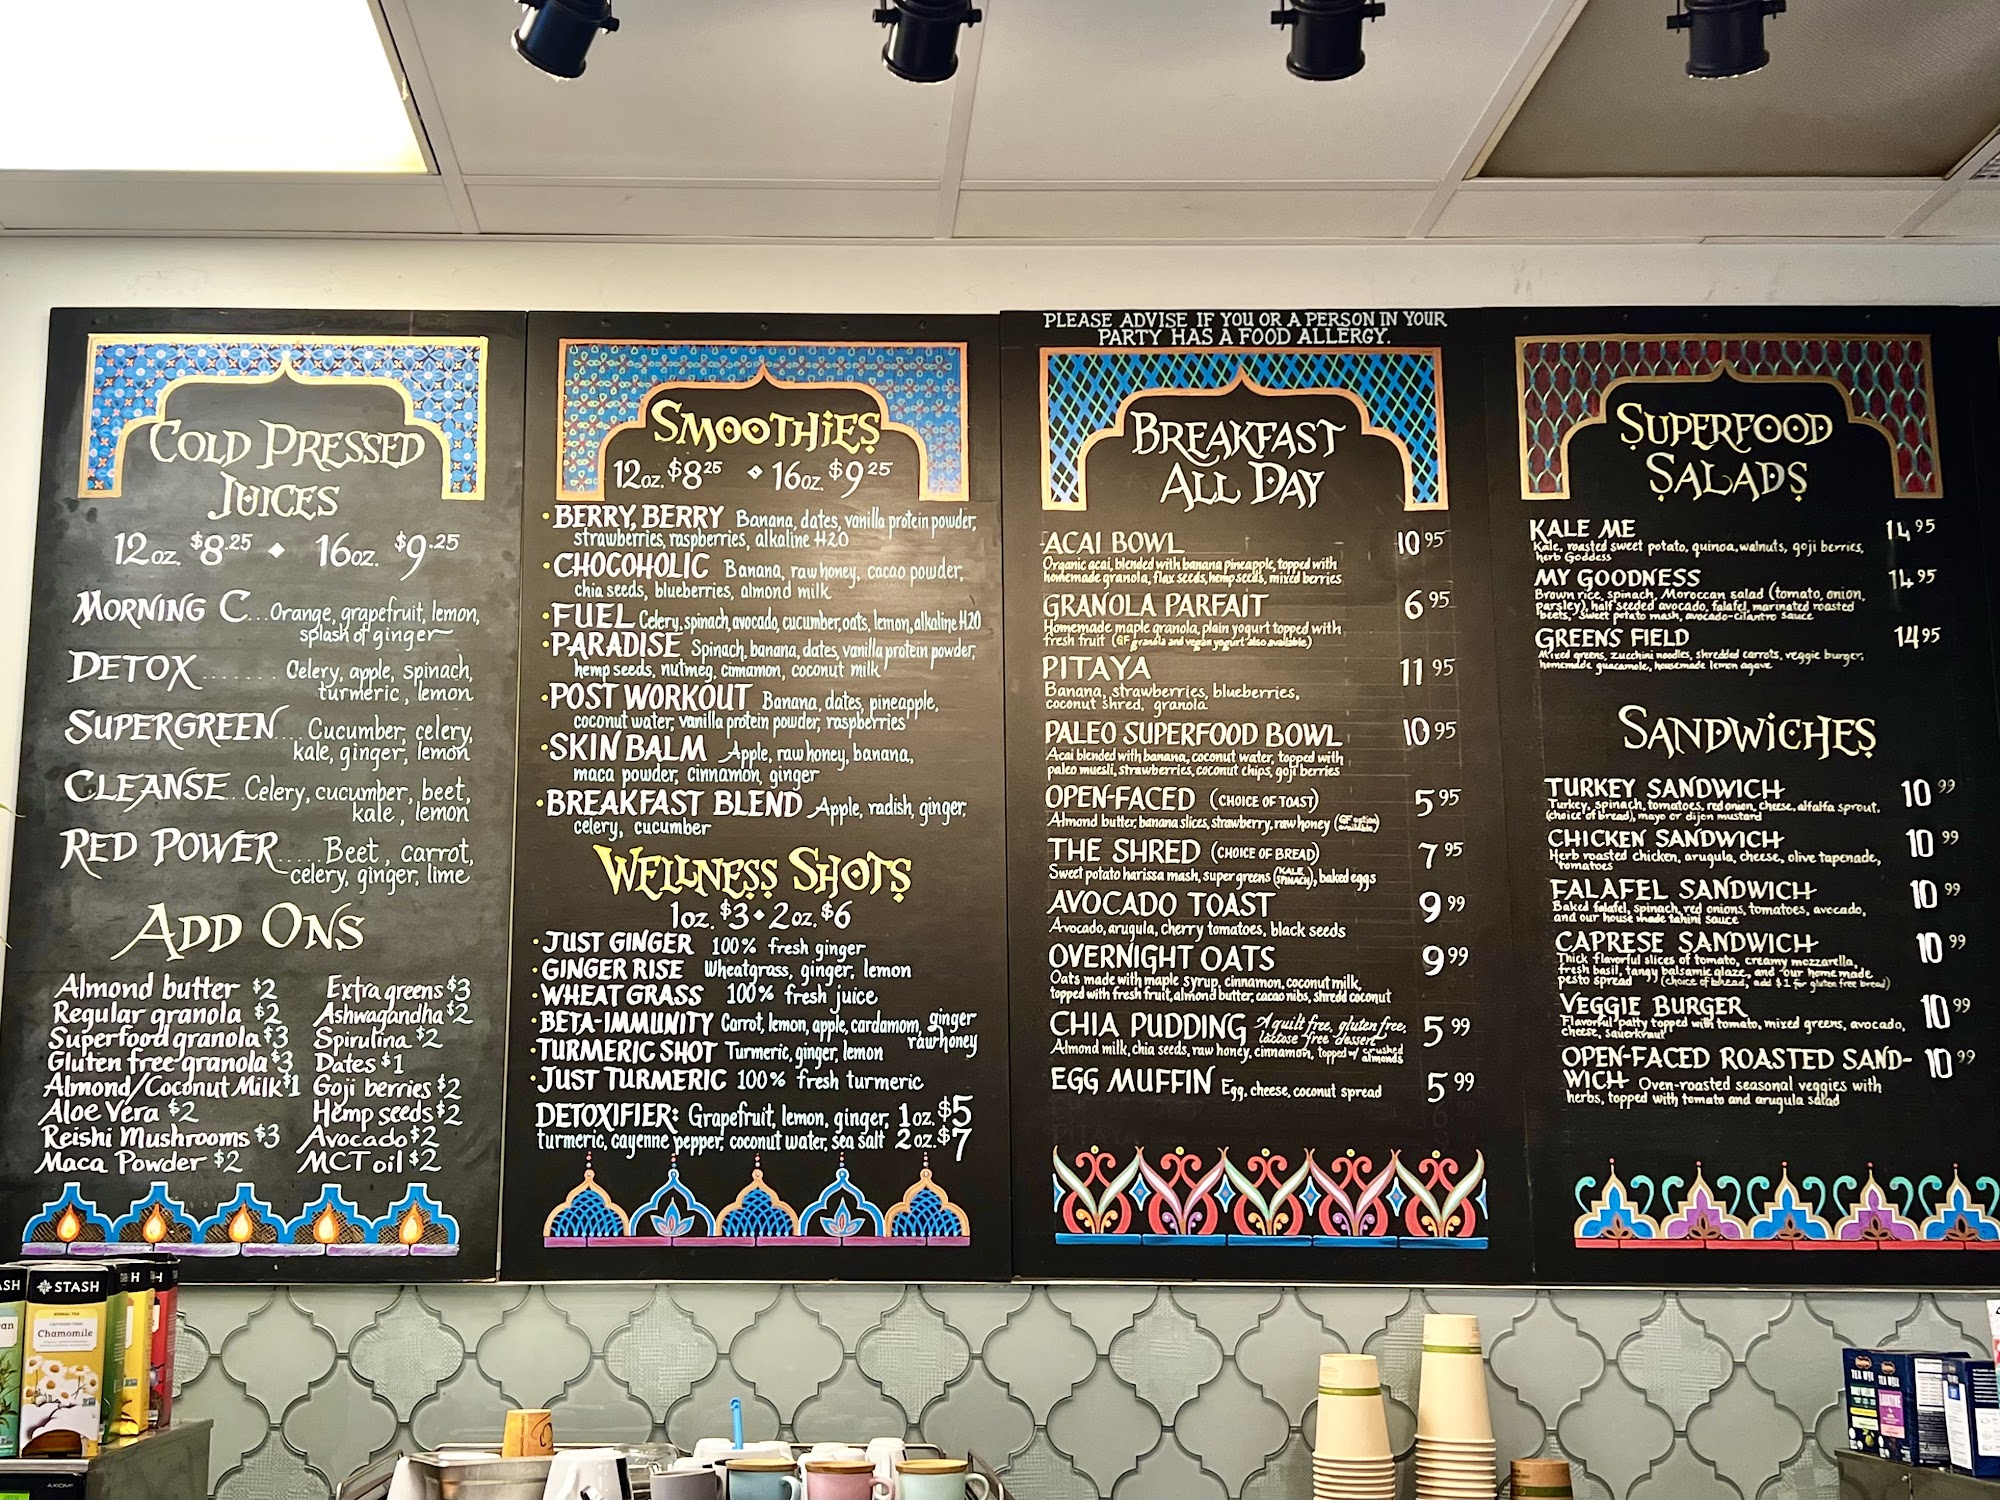 COLD PRESSED
JUICES
12oz. $8.25 ◆ 16oz. $9.25
MORNING C... Orange, grapefruit, lemon,
splash of ginger
DETOX....... Celery, apple, spinach,
turmeric, lemon
SUPERGREEN.... Cucumber, celery,
kale, ginger, lemon
CLEANSE.. Celery, cucumber, beet,
kale, lemon
RED POWER..... Beet, carrot,
celery, ginger, lime
ADD ONS
Almond butter $2
Regular granola $2
Superfood granola $3
Gluten free granola $3
Almond/Coconut Milk $1
Aloe Vera $2
Reishi Mushrooms $3
Maca Powder $2
Extra greens $3
Ashwagandha $2
Spirulina $2
Dates $1
Goji berries $2
Hemp seeds $2
Avocado $2
MCT oil $2
SMOOTHIES
12oz. $8 25 ◆ 16oz. $9 25
• BERRY, BERRY Banana, dates, vanilla protein powder,
strawberries, raspberries, alkaline H2O
• CHOCOHOLIC Banana, raw honey, cacao powder,
chia seeds, blueberries, almond milk
• FUEL Celery, spinach, avocado, cucumber, oats, lemon, alkaline H2O
• PARADISE Spinach, banana, dates, vanilla protein powder,
hemp seeds, nutmeg, cinnamon, coconut milk
• POST WORKOUT Banana, dates, pineapple,
coconut water, vanilla protein powder, raspberries
• SKIN BALM Apple, raw honey, banana,
maca powder, cinnamon, ginger
• BREAKFAST BLEND Apple, radish, ginger,
celery, cucumber
WELLNESS SHOTS
1oz. $3 ◆ 2oz. $6
• JUST GINGER 100% fresh ginger
• GINGER RISE Wheatgrass, ginger, lemon
• WHEAT GRASS 100% fresh juice
• BETA-IMMUNITY Carrot, lemon, apple, cardamom, ginger
raw honey
• TURMERIC SHOT Turmeric, ginger, lemon
• JUST TURMERIC 100% fresh turmeric
DETOXIFIER: Grapefruit, lemon, ginger, 1oz. $5
turmeric, cayenne pepper, coconut water, sea salt 2oz. $7
PLEASE ADVISE IF YOU OR A PERSON IN YOUR
PARTY HAS A FOOD ALLERGY.
BREAKFAST
ALL DAY
ACAI BOWL 10 95
Organic acai, blended with banana pineapple, topped with
homemade granola, flax seeds, hemp seeds, mixed berries
GRANOLA PARFAIT 6 95
Homemade maple granola, plain yogurt topped with
fresh fruit (GF granola and vegan yogurt also available)
PITAYA 11 95
Banana, strawberries, blueberries,
coconut shred, granola
PALEO SUPERFOOD BOWL 10 95
Acai blended with banana, coconut water, topped with
paleo muesli, strawberries, coconut chips, goji berries
OPEN-FACED (CHOICE OF TOAST) 5 95
Almond butter, banana slices, strawberry, raw honey (GF option available)
THE SHRED (CHOICE OF BREAD) 7 95
Sweet potato harissa mash, super greens (KALE SPINACH), baked eggs
AVOCADO TOAST 9 99
Avocado, arugula, cherry tomatoes, black seeds
OVERNIGHT OATS 9 99
Oats made with maple syrup, cinnamon, coconut milk,
topped with fresh fruit, almond butter, cacao nibs, shredd coconut
CHIA PUDDING A guilt free, gluten free, lactose free dessert 5 99
Almond milk, chia seeds, raw honey, cinnamon, topped w/ crushed almonds
EGG MUFFIN Egg, cheese, coconut spread 5 99
SUPERFOOD
SALADS
KALE ME 14 95
Kale, roasted sweet potato, quinoa, walnuts, goji berries,
herb Goddess
MY GOODNESS 14 95
Brown rice, spinach, Moroccan salad (tomato, onion,
parsley), half seeded avocado, falafel, marinated roasted
beets, sweet potato mash, avocado-cilantro sauce
GREENS FIELD 14 95
Mixed greens, zucchini noodles, shredded carrots, veggie burger,
homemade guacamole, housemade lemon agave
SANDWICHES
TURKEY SANDWICH 10 99
Turkey, spinach, tomatoes, red onion, cheese, alfalfa sprout,
(choice of bread), mayo or dijon mustard
CHICKEN SANDWICH 10 99
Herb roasted chicken, arugula, cheese, olive tapenade,
tomatoes
FALAFEL SANDWICH 10 99
Baked falafel, spinach, red onions, tomatoes, avocado,
and our house made tahini sauce
CAPRESE SANDWICH 10 99
Thick flavorful slices of tomato, creamy mozzarella,
fresh basil, tangy balsamic glaze, and our home made
pesto spread (choice of bread, add $1 for gluten free bread)
VEGGIE BURGER 10 99
Flavorful patty topped with tomato, mixed greens, avocado,
cheese, sauerkraut
OPEN-FACED ROASTED SAND- 10 99
WICH Oven-roasted seasonal veggies with
herbs, topped with tomato and arugula salad
STASH
Chamomile